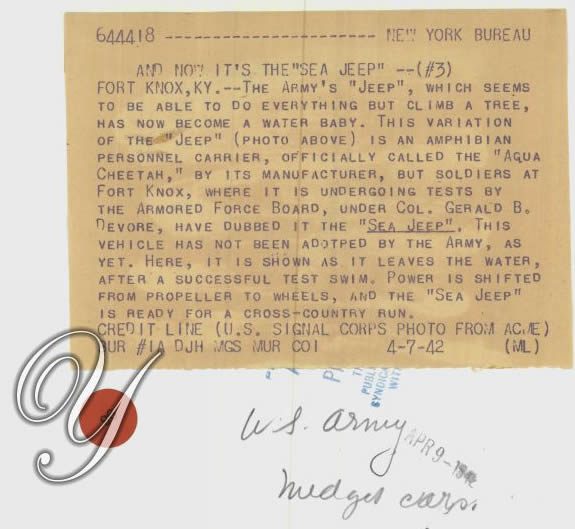 644418 ----------------------- NEW YORK BUREAU
AND NOW IT'S THE "SEA JEEP" --(#3)
FORT KNOX, KY.--THE ARMY'S "JEEP", WHICH SEEMS
TO BE ABLE TO DO EVERYTHING BUT CLIMB A TREE,
HAS NOW BECOME A WATER BABY. THIS VARIATION
OF THE "JEEP" (PHOTO ABOVE) IS AN AMPHIBIAN
PERSONNEL CARRIER, OFFICIALLY CALLED THE "AQUA
CHEETAH," BY ITS MANUFACTURER, BUT SOLDIERS AT
FORT KNOX, WHERE IT IS UNDERGOING TESTS BY
THE ARMORED FORCE BOARD, UNDER COL. GERALD B.
DEVORE, HAVE DUBBED IT THE "SEA JEEP". THIS
VEHICLE HAS NOT BEEN ADOTPED BY THE ARMY, AS
YET. HERE, IT IS SHOWN AS IT LEAVES THE WATER,
AFTER A SUCCESSFUL TEST SWIM. POWER IS SHIFTED
FROM PROPELLER TO WHEELS, AND THE "SEA JEEP"
IS READY FOR A CROSS-COUNTRY RUN.
CREDIT LINE (U.S. SIGNAL CORPS PHOTO FROM ACME)
BUR #1A DJH MGS MUR COI 4-7-42 (ML)
Y
U.S. Army
APR 9-1942
Midget cars.